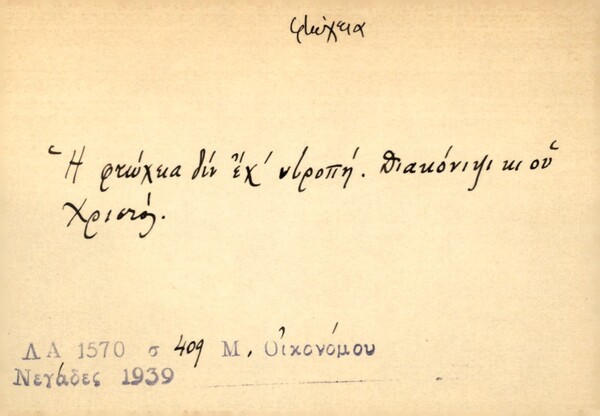 φτώχεια
Ἡ φτώχεια δὶν ἔχ' ντροπή. Διακόνιψι κι οὑ
Χριστός.
ΛΑ 1570 σ 409 Μ. Οἰκονόμου
Νεγάδες 1939